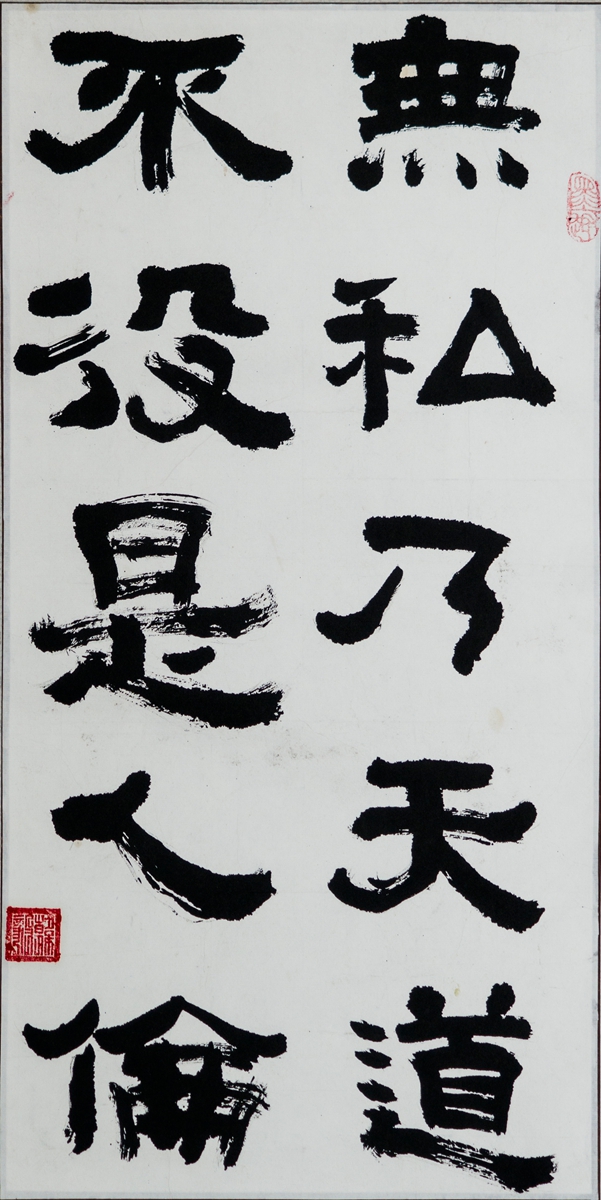 無私乃天道
不没是人倫